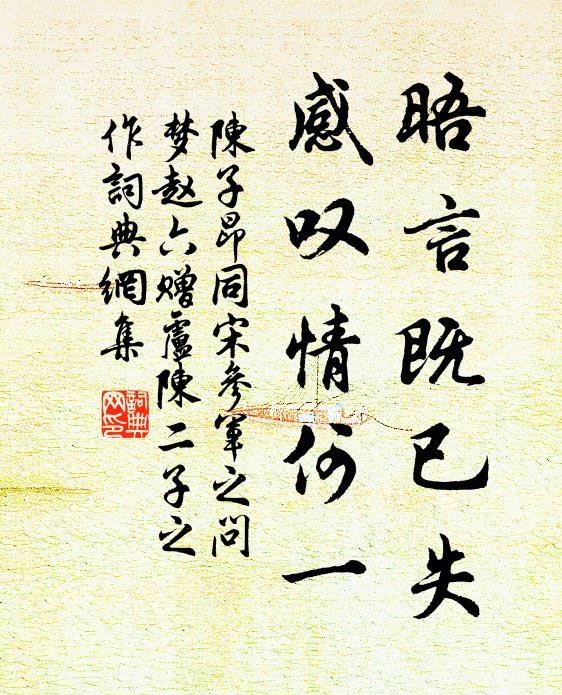 晤言既已失
感叹情何一
陳子昂同宋参軍之問
梦赵六赠盧陳二子之
作詞典網集
詞典
网印